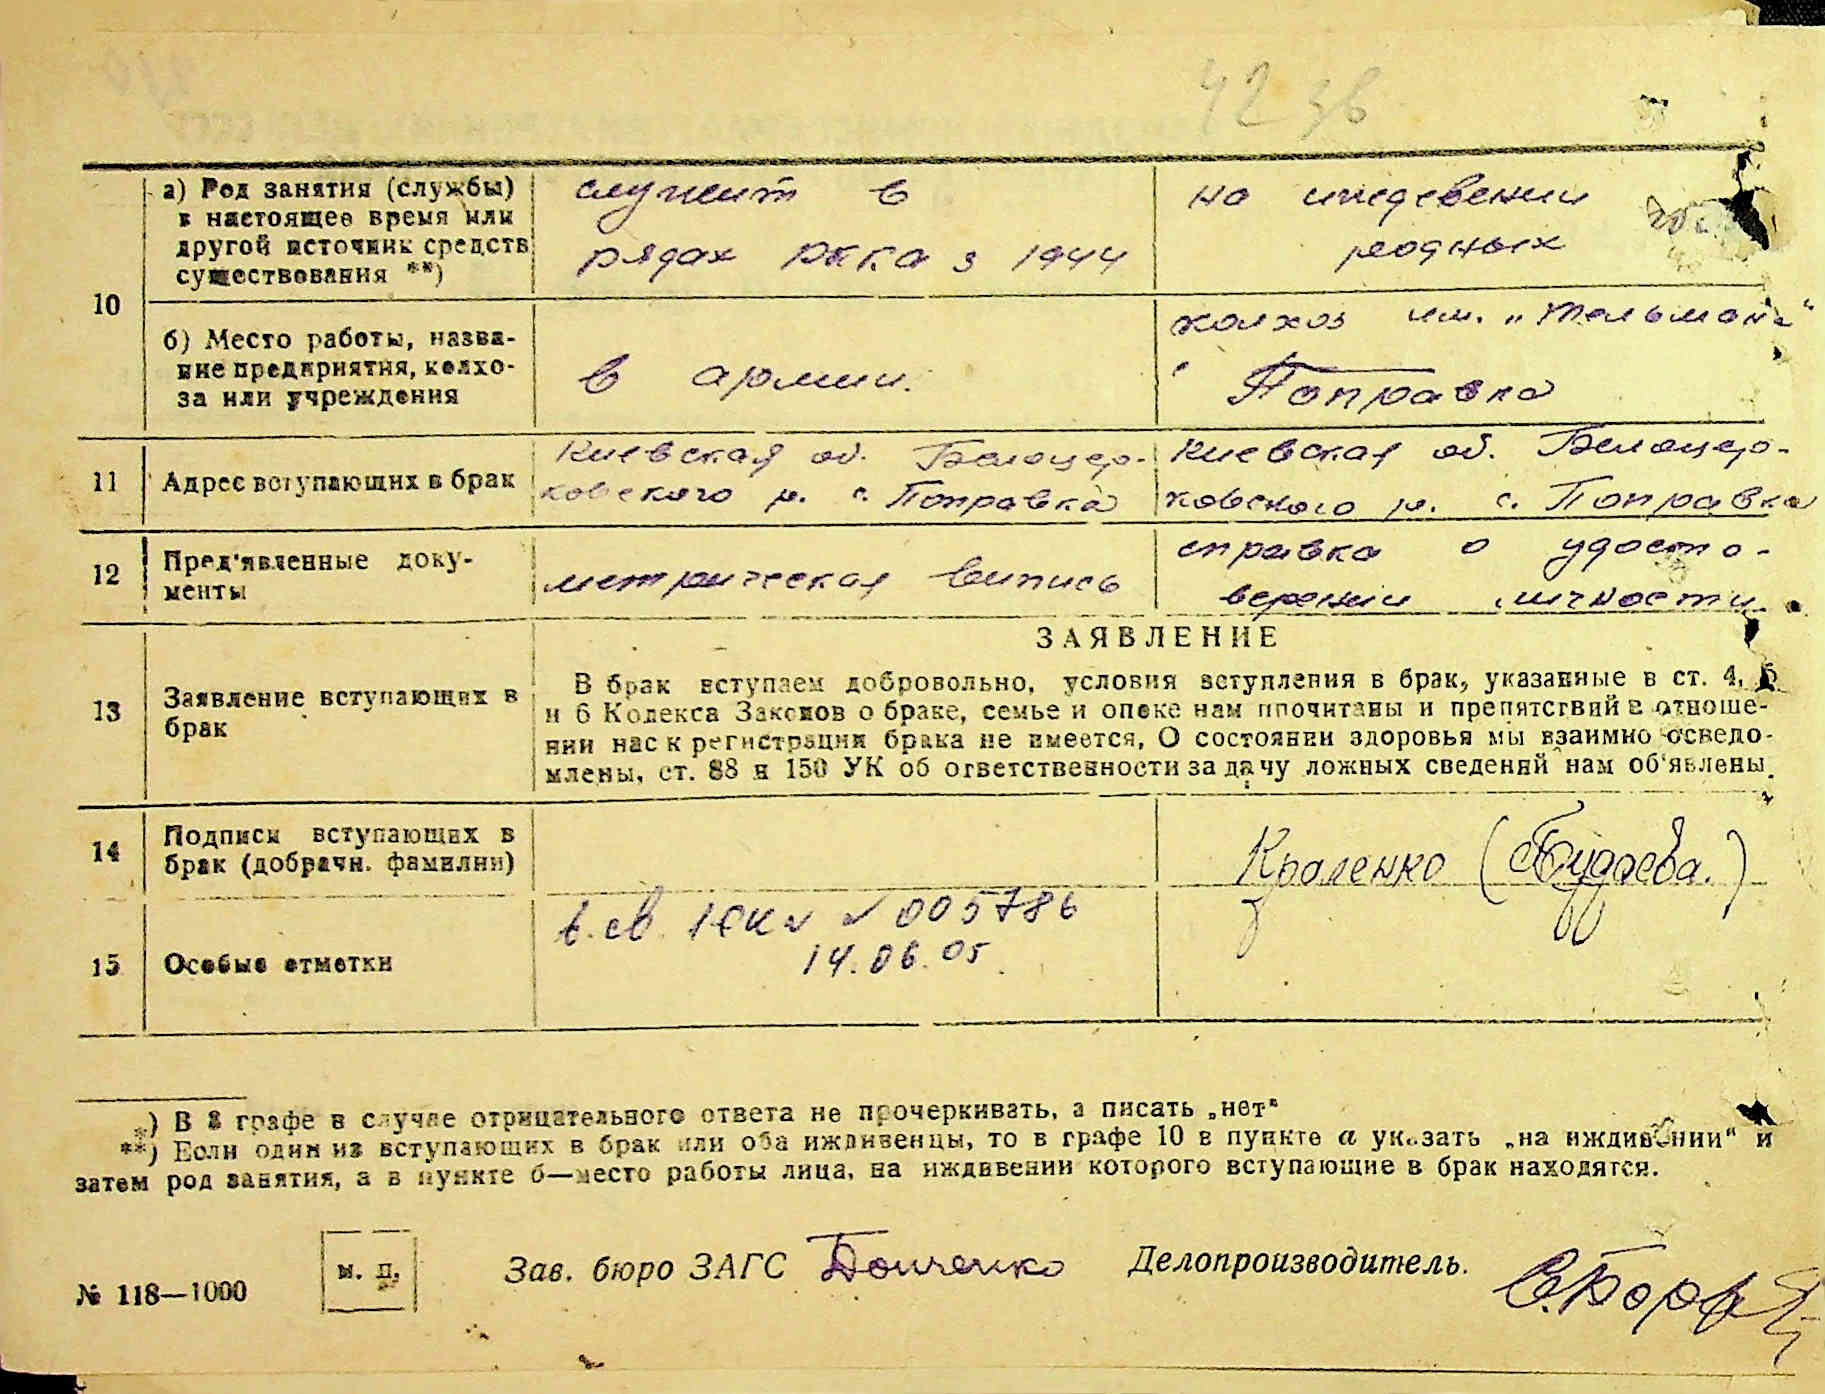 42 зв
10
а) Род занятия (службы) в настоящее время или другой источник средств существования **)
служит в
рядах РККА з 1944
на иждевении
родных
б) Место работы, название предприятия, колхоза или учреждения
в армии.
колхоз им. „Тельмана“
Поправка
11
Адрес вступающих в брак
Киевская об. Белоцер-
ковского р. с. Поправка
Киевская об. Белоцер-
ковского р. с. Поправка
12
Пред'явленные доку-
менты
метрическая випись
справка о удосто-
верении личности
13
Заявление вступающих в
брак
ЗАЯВЛЕНИЕ
В брак вступаем добровольно, условия вступления в брак, указанные в ст. 4, 5
и 6 Кодекса Законов о браке, семье и опеке нам прочитаны и препятствий в отноше-
нии нас к регистрации брака не имеется, О состоянии здоровья мы взаимно осведо-
млены, ст. 88 и 150 УК об ответственности за дачу ложных сведений нам об'явлены.
14
Подписи вступающих в
брак (добрачн. фамилии)
Краленко
15
Особые отметки
в. св. № 005786
14.06.05
*) В 8 графе в случае отрицательного ответа не прочеркивать, а писать „нет“
**) Если один из вступающих в брак или оба иждивенцы, то в графе 10 в пункте а указать „на иждивении“ и
затем род занятия, а в пункте б—место работы лица, на иждивении которого вступающие в брак находятся.
№ 118—1000
м. п.
Зав. бюро ЗАГС
Делопроизводитель.